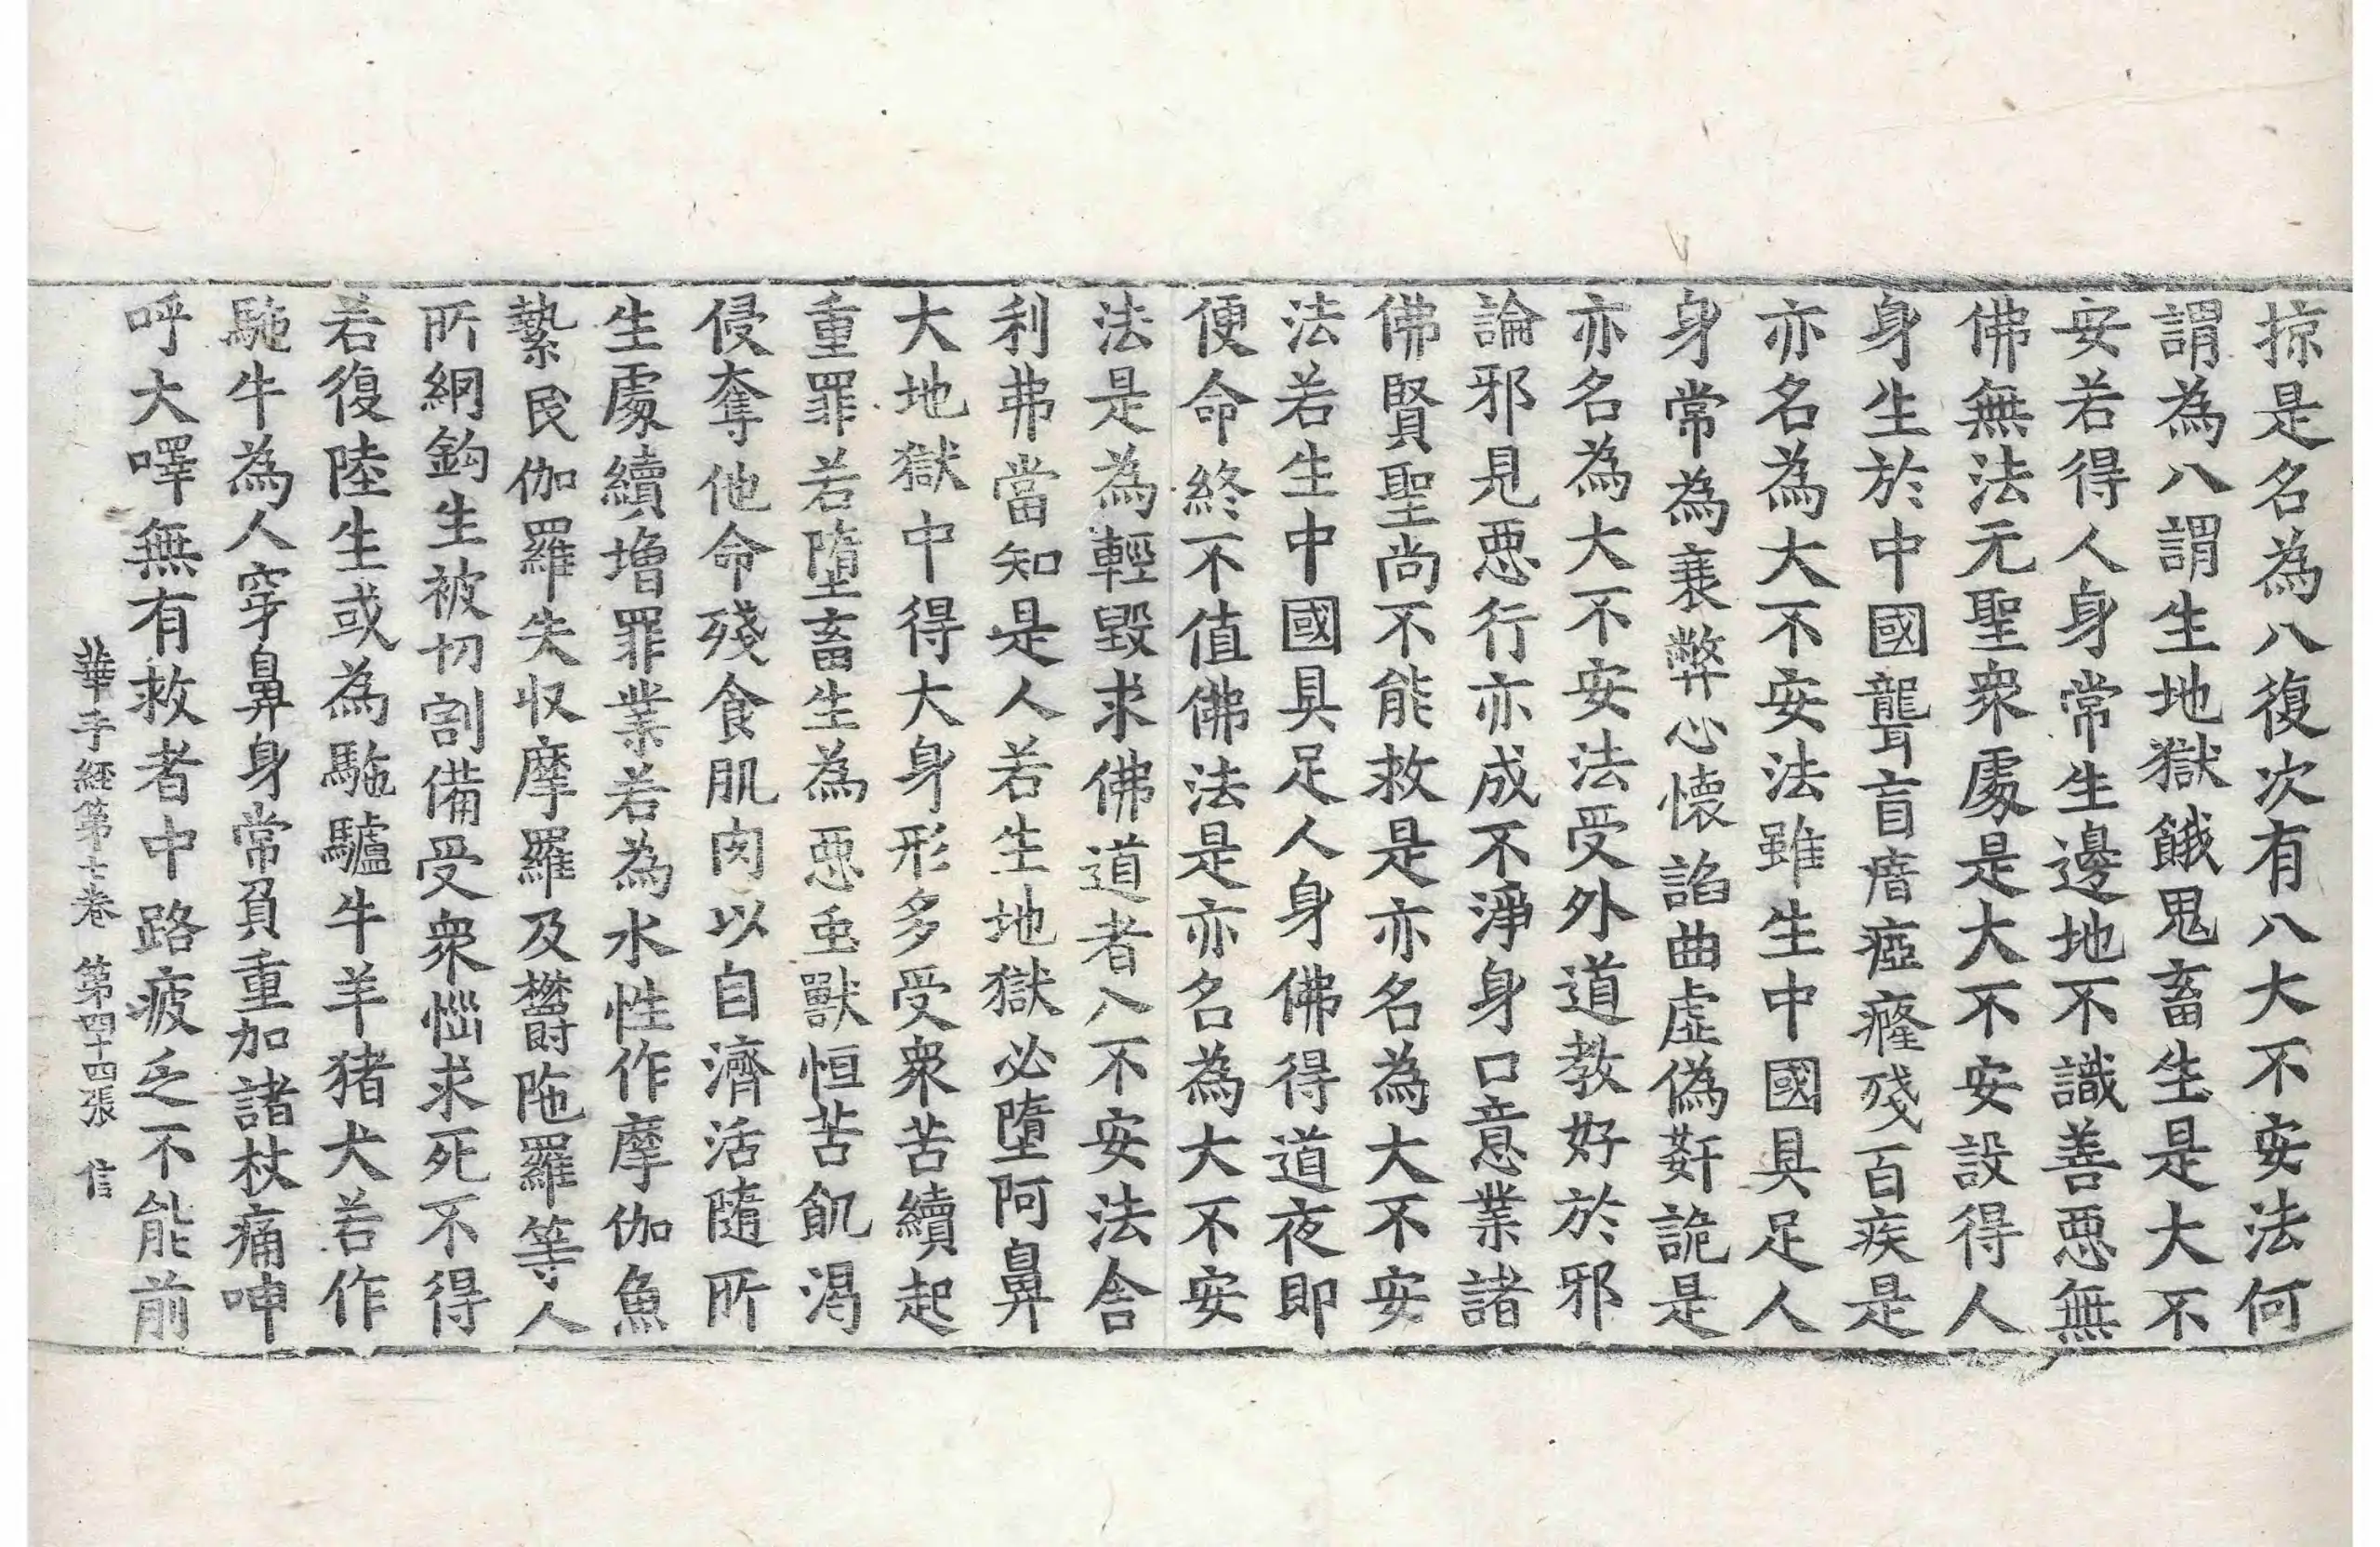 掠是名為八復次有八大不安法何
謂為八謂生地獄餓鬼畜生是大不
安若得人身常生邊地不識善惡無
佛無法无聖衆處是大不安設得人
身生於中國聾盲瘖瘂癃殘百疾是
亦名為大不安法雖生中國具足人
身常為衰弊心懷諂曲虛偽姧詭是
亦名為大不安法受外道教好於邪
論邪見惡行亦成不淨身口意業諸
佛賢聖尚不能救是亦名為大不安
法若生中國具足人身佛得道夜即
便命終不值佛法是亦名為大不安
法是為輕毀求佛道者八不安法舍
利弗當知是人若生地獄必墮阿鼻
大地獄中得大身形多受衆苦續起
重罪若墮畜生為惡虫獸恒苦飢渴
侵奪他命殘食肌肉以自濟活隨所
生處續增罪業若為水性作摩伽魚
慹民伽羅失収摩羅及欝陁羅等人
所網鈎生被切割備受衆惱求死不得
若復陸生或為駞驢牛羊猪犬若作
駞牛為人穿鼻身常負重加諸杖痛呻
呼大嘷無有救者中路疲乏不能前
華手經第七卷 第四十四張 信